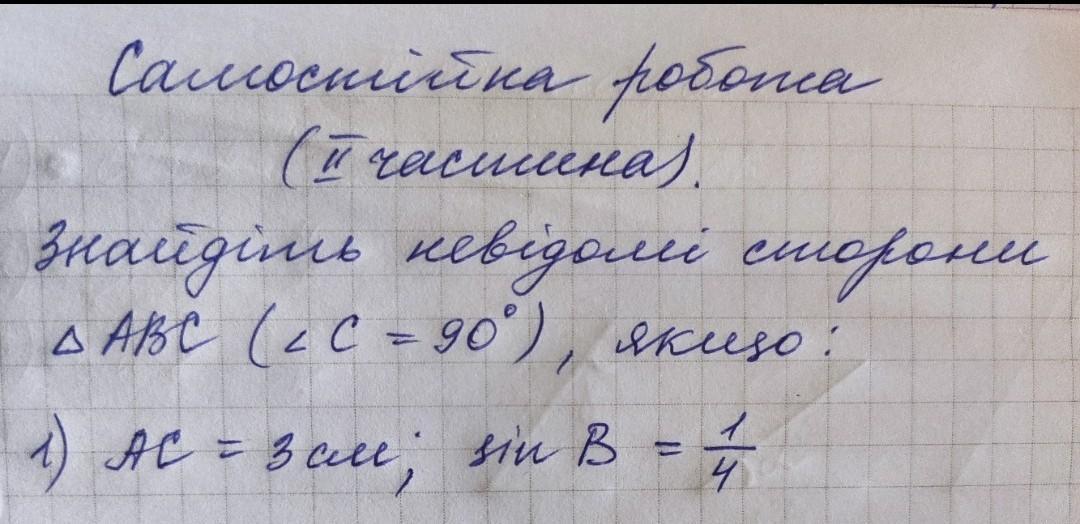 Самостійна робота
(II частина).
Знайдіть невідомі сторони
△ ABC (∠C = 90°), якщо:
1) AC = 3 см; sin B = 1/4